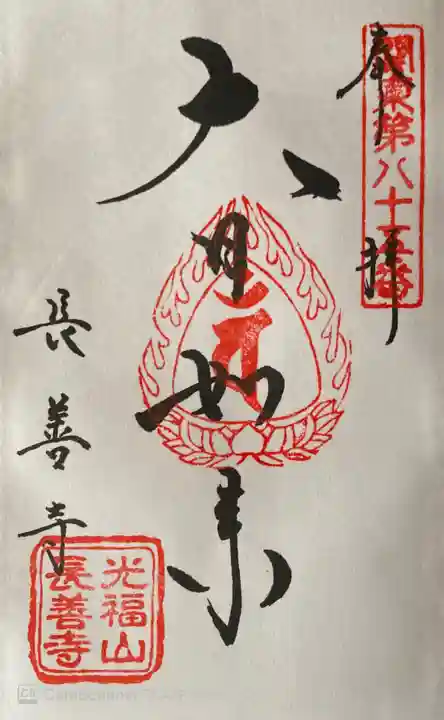 奉拝
関東第八十五番
大日如来
長善寺
光福山
長善寺
CamScanner